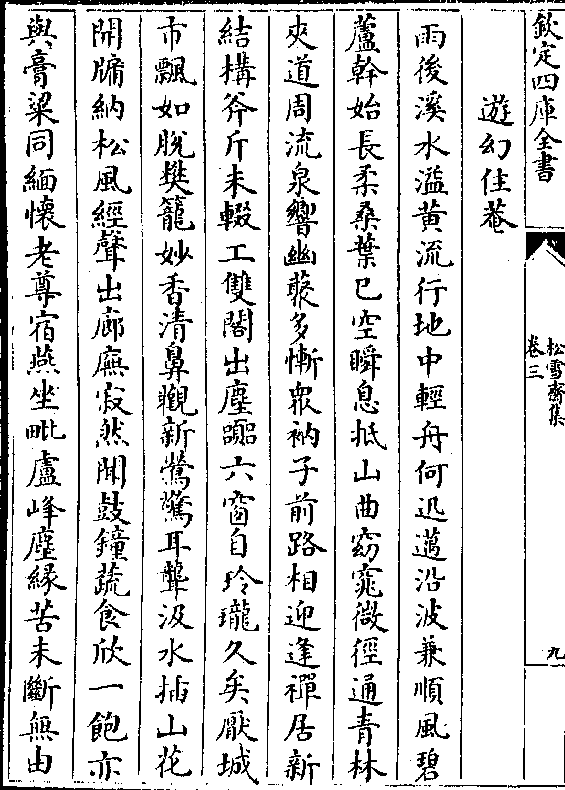 欽定四庫全書
松雪齋集
卷三
九
遊幻住菴
雨後溪水溢黄流行地中輕舟何迅邁沿波兼順風碧
蘆幹始長柔桑葉已空瞬息抵山曲窈窕微徑通青林
夾道周流泉響幽藂多慚衆衲子前路相迎逢禪居新
結構斧斤未輟工雙閣出塵囂六窗自玲瓏久矣厭城
市飄如脱樊籠妙香清鼻觀新鶯驚耳聾汲水揷山花
開牖納松風經聲出廊廡寂然聞鼓鐘蔬食欣一飽亦
與膏粱同緬懷老尊宿燕坐毗盧峰塵緣苦未斷無由